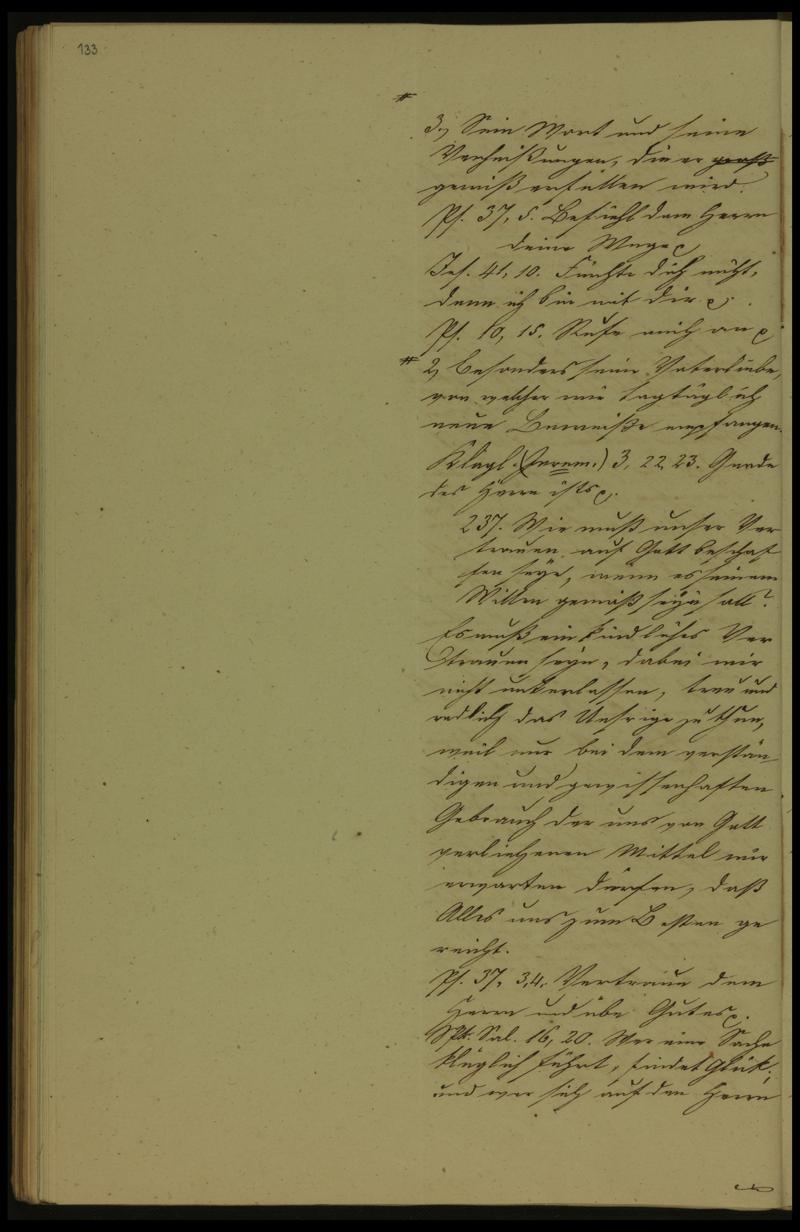 133
#
3., Sein Wort und seine
Verheißungen, die er groß
gewiß erfüllen wird.
Ps. 37, 5. Befiehl dem Herrn
deine Wege
Jes. 41, 10. Fürchte dich nicht,
denn ich bin mit dir
Ps. 10, 15. Rufe mich an
# 2, Besonders seine Vaterliebe,
von welcher wir tagtäglich
neue Beweiße empfangen.
Klagl. (Jerem.) 3, 22, 23. Gnade
des Herrn ists
237. Wie muß unser Ver
trauen auf Gott beschaf
fen seyn, wenn es seinem
Willen gemäß seyn soll?
Es muß ein kindliches Ver
trauen seyn, dabei wir
nicht unterlassen, treu und
redlich das Unsrige zu thun,
weil nur bei dem verstän
digen und gewissenhaften
Gebrauch der uns von Gott
verliehenen Mittel wir
erwarten dürfen, daß
Alles uns zum Besten ge
reicht.
Ps. 37, 3,4. Vertraue dem
Herrn und übe Gutes
Spr. Sal. 16, 20. Wer eine Sache
klüglich führt, findet Glük;
und wer sich auf den Herrn